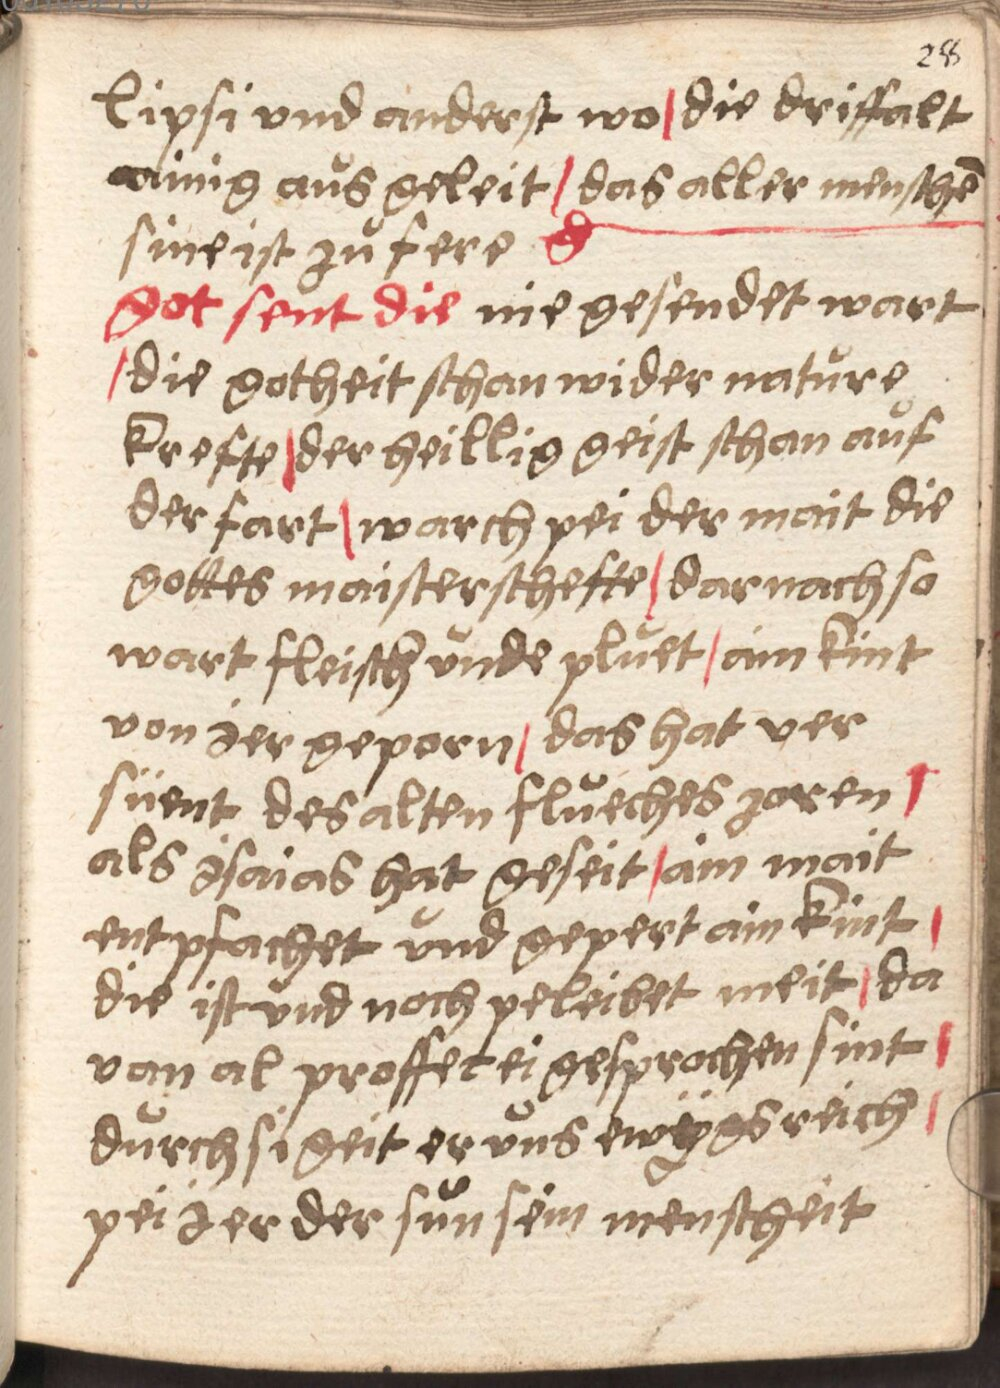 288
lipsi vnd anderst wo | die driffalt
ainig aus geleit | das aller menschē
sine ist zu fere
got sent die nie gesendet wart
| die gotheit schan wider nature
krefte | der heillig geist schan auf
der fart | warch pei der mait die
gottes maisterschefte | darnach so
wart fleisch vnde pluet | ain kint
von ier geporn | das hat ver
süent des alten flueches zoren |
als isaias hat geseit | ain mait
entpfachet vnd gepert ain kint |
die ist vnd noch peleibet meit | da
van al proffecei gesprochen sint |
durch si geit er vns ewÿgs reich |
pei ier der sun sein menscheit